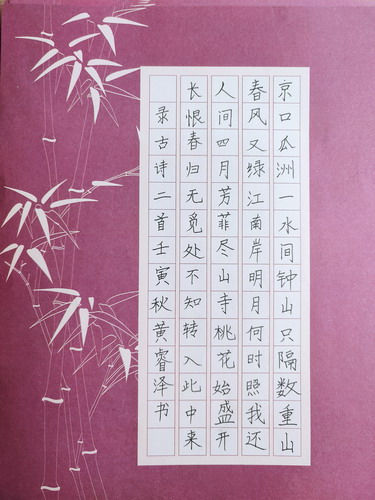 京口瓜洲一水间钟山只隔数重山
春风又绿江南岸明月何时照我还
人间四月芳菲尽山寺桃花始盛开
长恨春归无觅处不知转入此中来
录古诗二首壬寅秋黄睿泽书